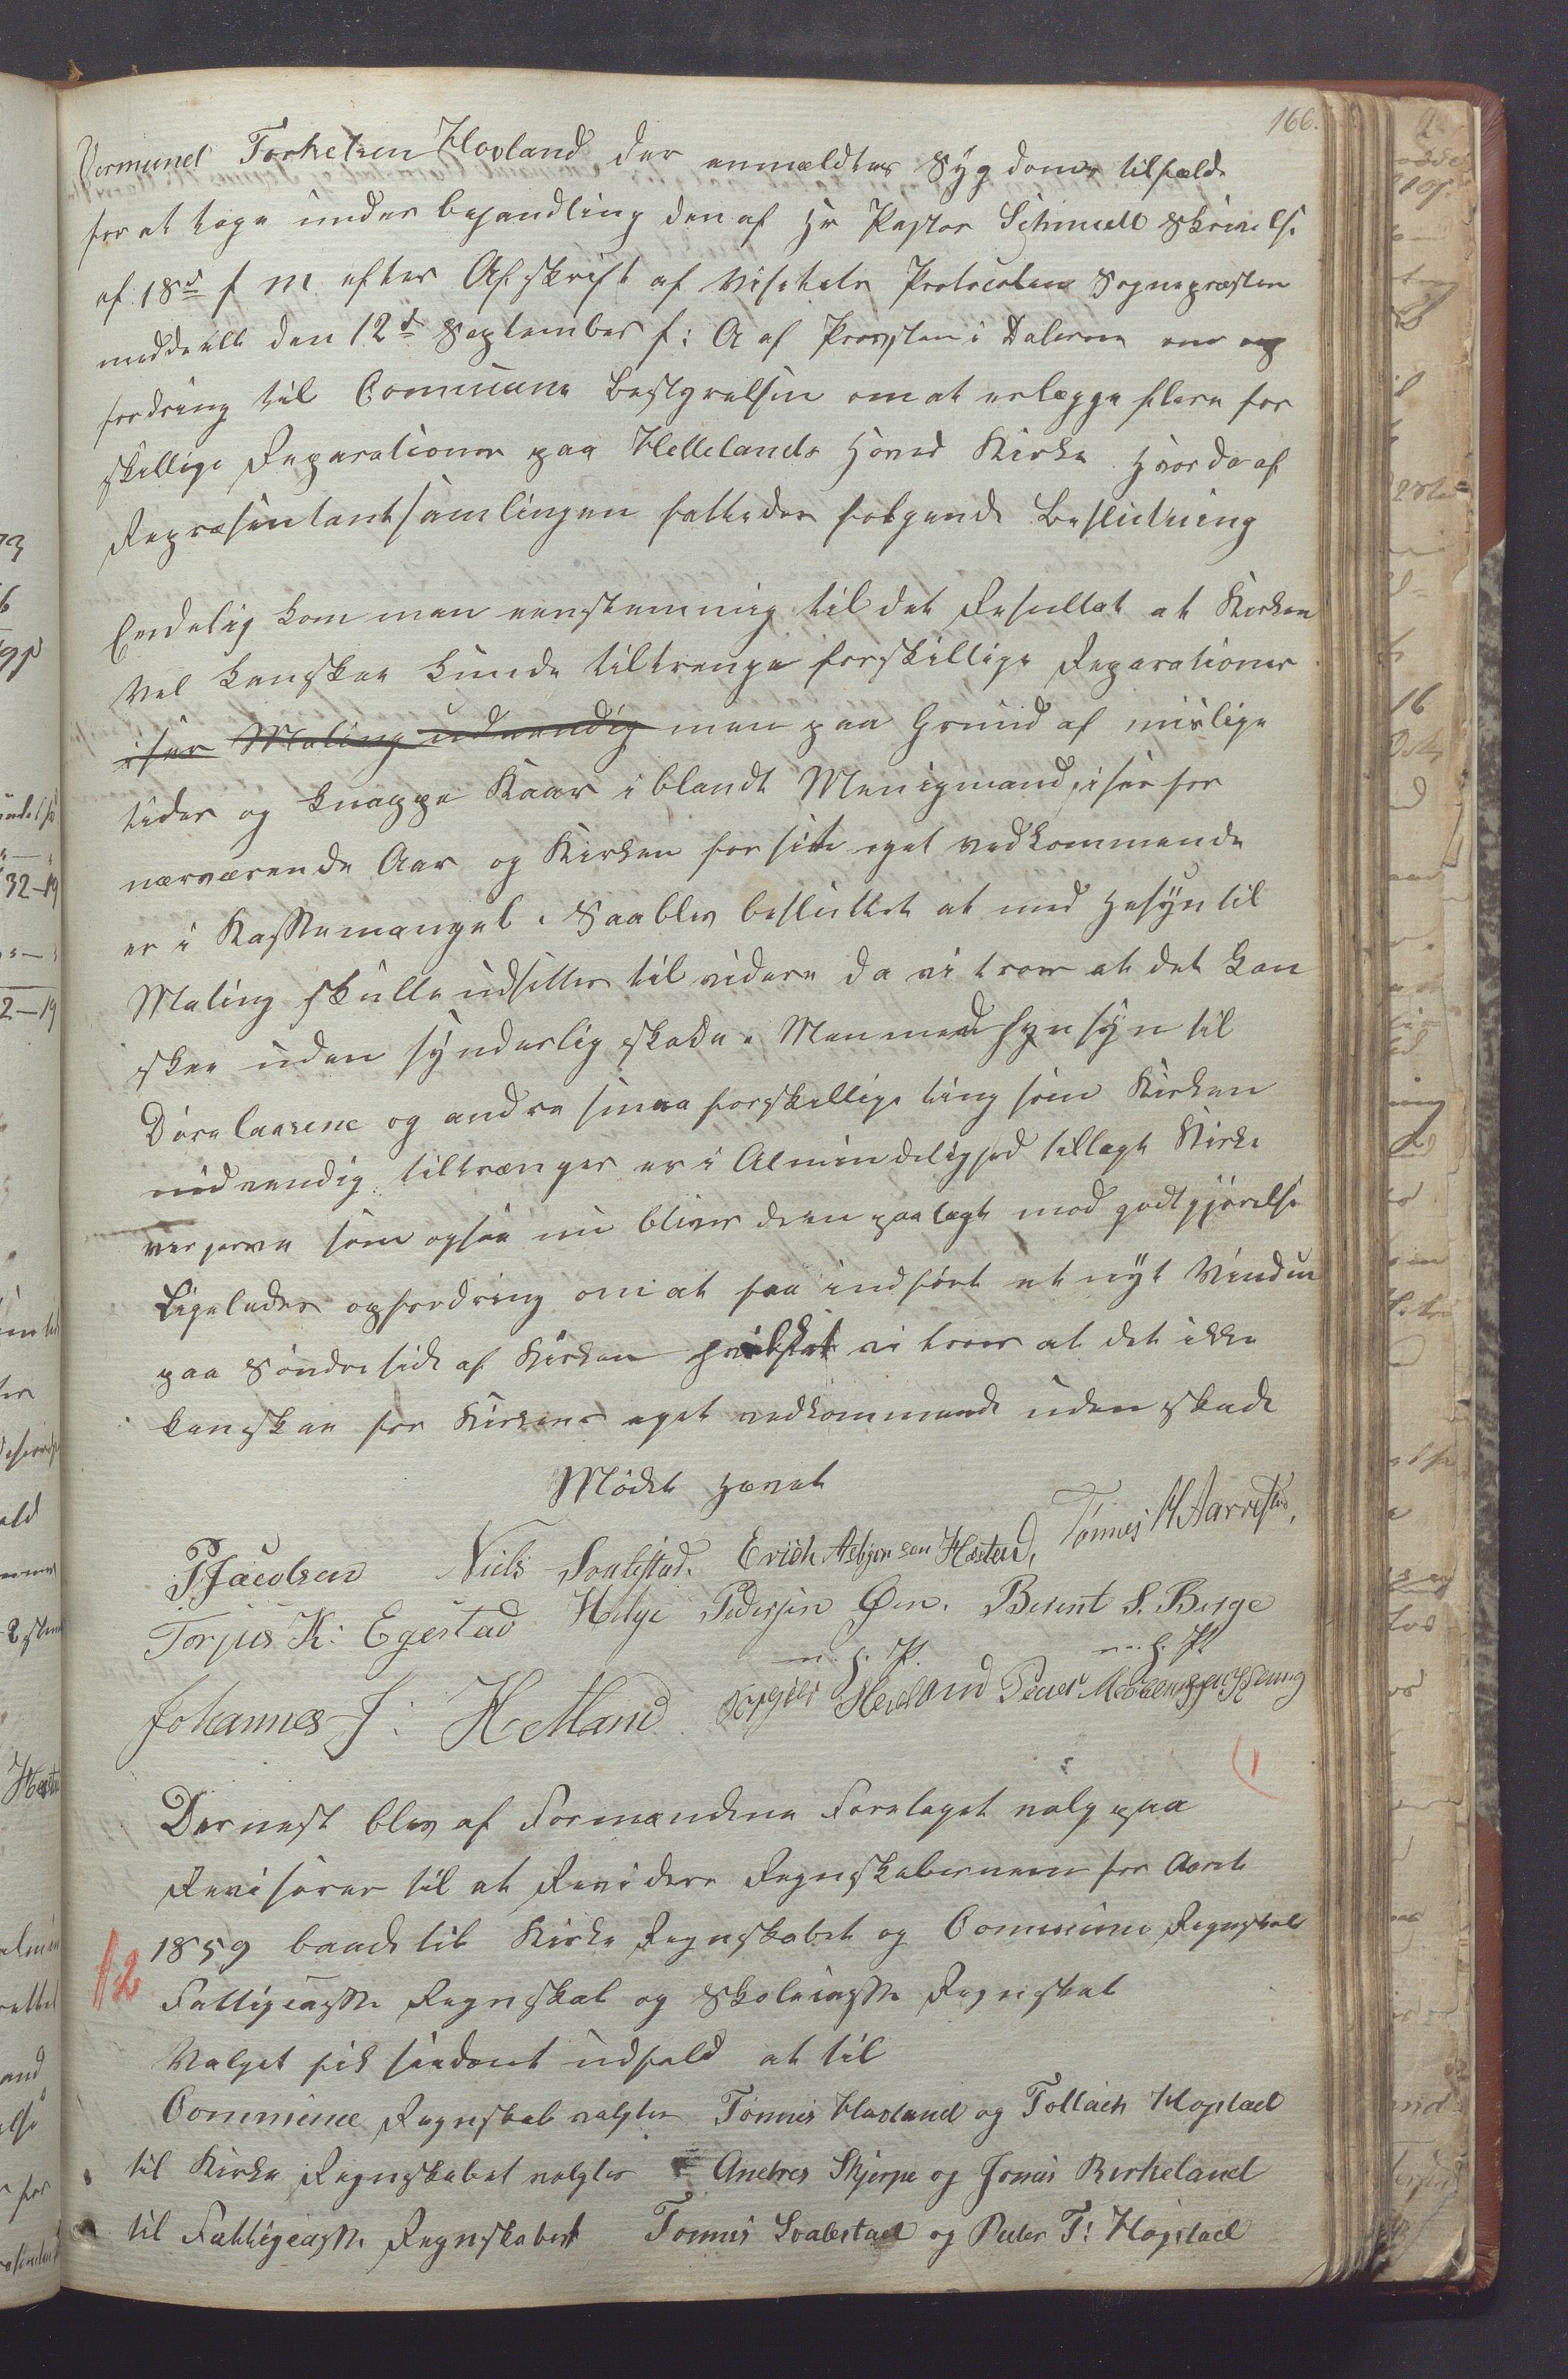 166.
Vermund Torkelsen Hovland der anmeldtes Sygdoms tilfælde
for at tage under behandling den af Hr Pastor Schmidt Skrivelse
af 18de f M efter Afskrift af Visitats Protocolen Sognepresten
meddeelt den 12te September f: A af Provsten i Dalerne om op
fordring til Commune Bestyrelsen om at erlægge flere for
skillige Reparationer paa Hellelands Hoved Kirke hvor da af
Repræsentantsamlingen fattedes følgende Beslutning
Endelig kom man eenstemmig til det Resultat at Kirken
vel kanskee kunde tiltrenge forskillige Reparationer
især Maling udvendig men paa Grund af mislige
tider og knappe Kaar iblandt Menigmand, især for
nærværende Aar og Kirken for sit eget vedkommende
er i Kassemangel. Saa blev besluttet at med Hesyn til
Maling skulle udsettes til videre da vi troer at det kan
skee uden synderlig skade. Men med hensyn til
Dørelaasene og andre smaa forskellige ting som Kirken
nødvendig tiltrænger er i Almindelighed tillagt Kirke
vergerne som ogsaa nu bliver dem paalagt mod godtgjørelse
Ligeledes opfordring om at faa indført et nyt Vindue
paa Søndre side af Kirken hvilket vi troer at det ikke
kan skee for Kirkens eget vedkommende uden skade
Mødet Hævet
P Jacobsen Niels Svalestad. Erich Asbjørnsen Hæstad, Tønnes H Aarrestad,
Torjus K: Egestad Helge Pedersen Øen. Berent S. Berge
m. f. P. m. f. P.
Johannes J: Hetland Torgiels Hovland Peder
Dernest blev af Formændene Foretaget valg paa
Revisorer til at Revidere Regnskaberne for Aaret
1859 baade til Kirke Regnskabet og Commune Regnskab
12
Fattigcasse Regnskab og Skolecasse Regnskab
Valget fik saadant udfald at til
Commune Regnskab valgtes Tønnes Hovland og Tollach Hogstad
til Kirke Regnskabet valgtes Andres Skjerpe og Jonas Birkeland
til Fattigcasse Regnskabet Tønnes Svalestad og Peder T: Høgstad